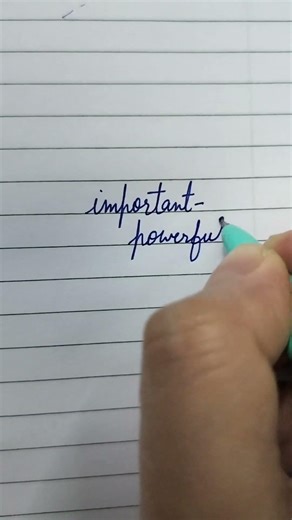 important-
powerfu